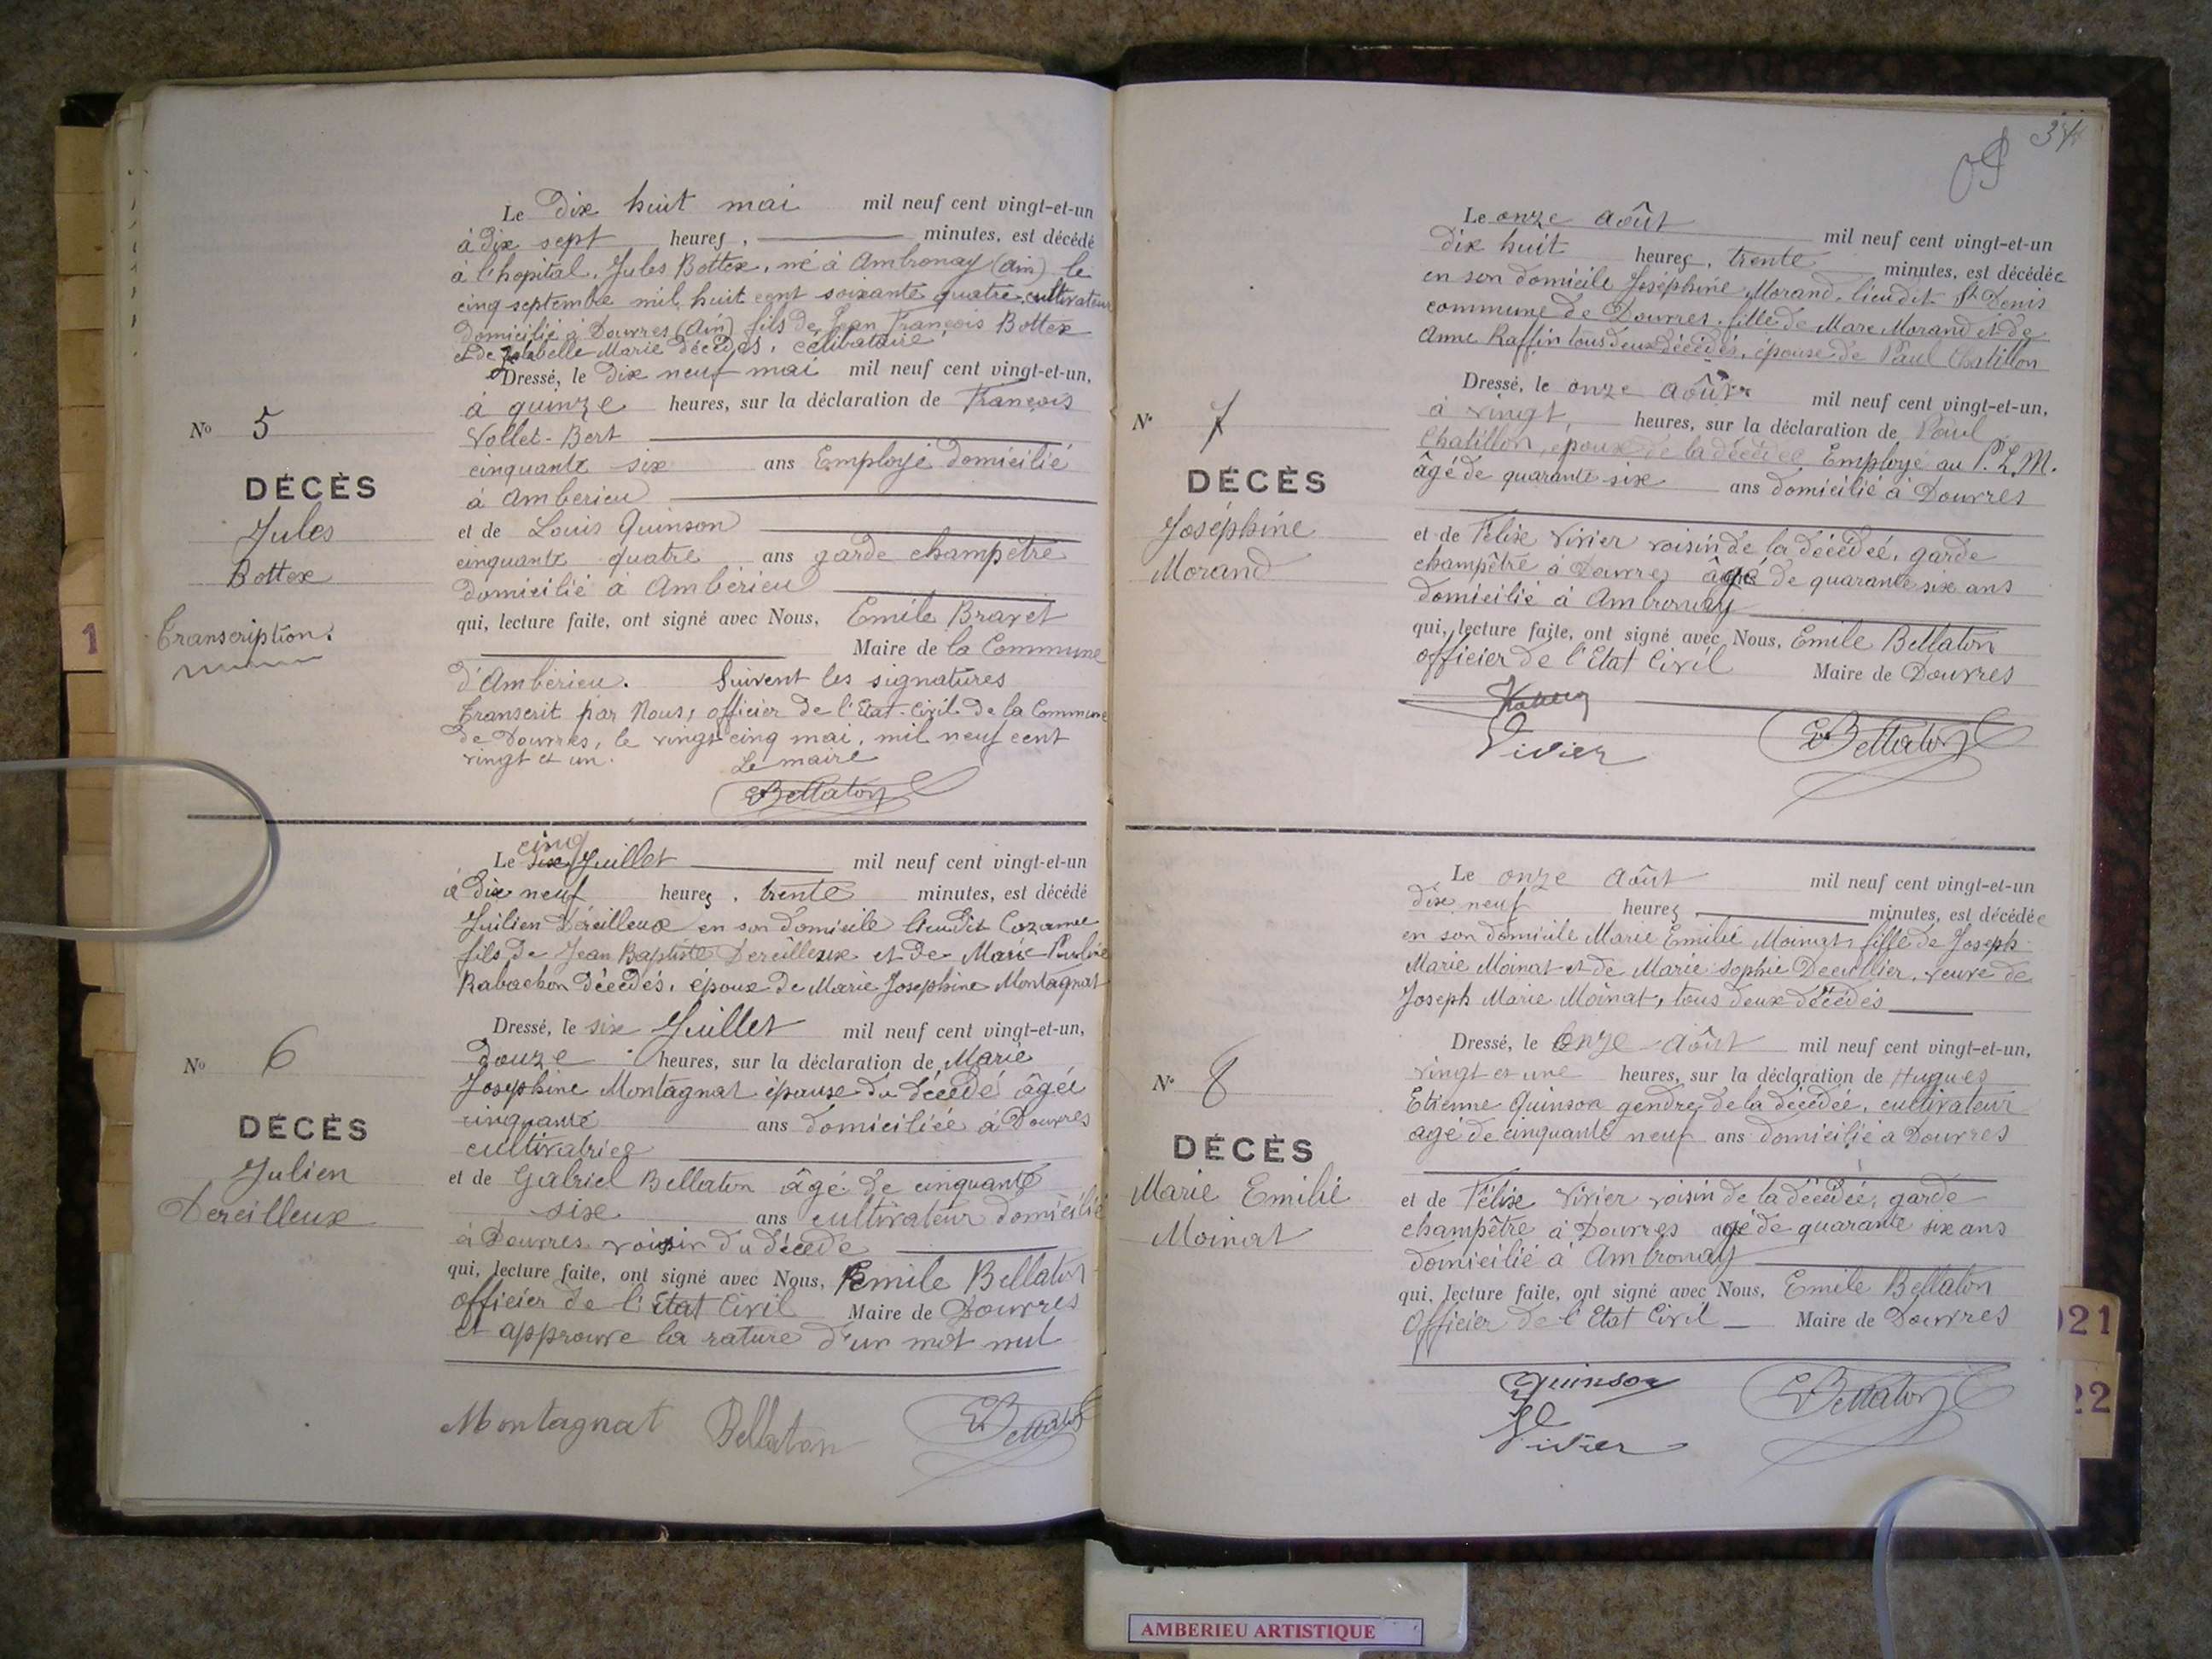 Le dix huit mai mil neuf cent vingt-et-un
à dix sept heures, minutes, est décédé
à l'hopital, Jules Bottex, né à Ambronay (Ain) le
cinq septembre mil huit cent soixante quatre cultivateur
domicilié à Douvres (Ain) fils de Jean François Bottex
et de belle Marie décédés, célibataire
Dressé, le dix neuf mai mil neuf cent vingt-et-un,
à quinze heures, sur la déclaration de François
Vollet-Bert
cinquante six ans Employé domicilié
à Amberieu
et de Louis Quinson
cinquante quatre ans garde champêtre
domicilié à Ambérieu
qui, lecture faite, ont signé avec Nous, Emile Bravet
Maire de la Commune
d'Ambérieu. Suivent les signatures
Transcrit par Nous, officier de l'Etat-Civil de la Commune
de Douvres, le vingt cinq mai, mil neuf cent
vingt et un. Le maire
EBellaton
No 5
DÉCÈS
Jules
Bottex
Transcription.
1
cinq
Le six Juillet mil neuf cent vingt-et-un
à dix neuf heures, trente minutes, est décédé
Julien Dereilleux en son domicile lieu dit
fils de Jean Baptiste Dereilleux et de Marie Pauline
Rabachon décédés, époux de Marie Josephine Montagnat
Dressé, le six Juillet mil neuf cent vingt-et-un,
douze heures, sur la déclaration de Marie
Josephine Montagnat épouse du décédé âgée
cinquante ans domiciliée à Douvres
cultivatrice
et de Gabriel Bellaton âgé de cinquante
six ans cultivateur domicilié
à Douvres voisin du décédé
qui, lecture faite, ont signé avec Nous, Emile Bellaton
officier de l'Etat Civil Maire de Douvres
et approuve la rature d'un mot nul
Montagnat Bellaton EBellaton
No 6
DÉCÈS
Julien
Dereilleux
34
Le onze Août mil neuf cent vingt-et-un
dix huit heures, trente minutes, est décédée
en son domicile Joséphine Morand, lieu dit St Denis
commune de Douvres, fille de Marc Morand et de
Anne Raffin tous deux décédés, épouse de Paul Chatillon
Dressé, le onze Août mil neuf cent vingt-et-un,
à vingt heures, sur la déclaration de Paul
Chatillon, époux de la décédée Employé au P.L.M.
âgé de quarante six ans domicilié à Douvres
et de Félix Vivier voisin de la décédée, garde
champêtre à Douvres âgé de quarante six ans
domicilié à Ambronay
qui, lecture faite, ont signé avec Nous, Emile Bellaton
officier de l'Etat Civil Maire de Douvres
Vivier EBellaton
No 7
DÉCÈS
Joséphine
Morand
Le onze Août mil neuf cent vingt-et-un
dix neuf heures, minutes, est décédée
en son domicile Marie Emilie Moinat, fille de Joseph
Marie Moinat et de Marie Sophie veuve de
Joseph Marie Moinat, tous deux décédés
Dressé, le Onze Août mil neuf cent vingt-et-un,
vingt et une heures, sur la déclaration de Hugues
Etienne Quinson gendre de la décédée, cultivateur
agé de cinquante neuf ans domicilié à Douvres
et de Félix Vivier voisin de la décédée, garde
champêtre à Douvres agé de quarante six ans
domicilié à Ambronay
qui, lecture faite, ont signé avec Nous, Emile Bellaton
Officier de l'Etat Civil Maire de Douvres
Quinson EBellaton
Vivier
No 8
DÉCÈS
Marie Emilie
Moinat
21
22
AMBERIEU ARTISTIQUE